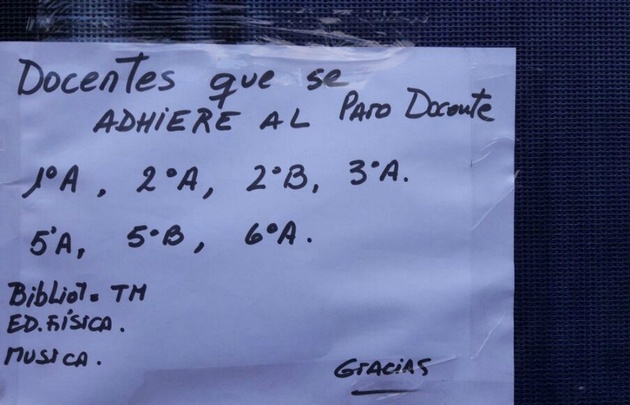 Docentes que se
ADHIERE AL Paro Docente
1°A, 2°A, 2°B, 3°A.
5°A, 5°B, 6°A.
Bibliot. TM
ED. FÍSICA.
MUSICA.
GraciAS